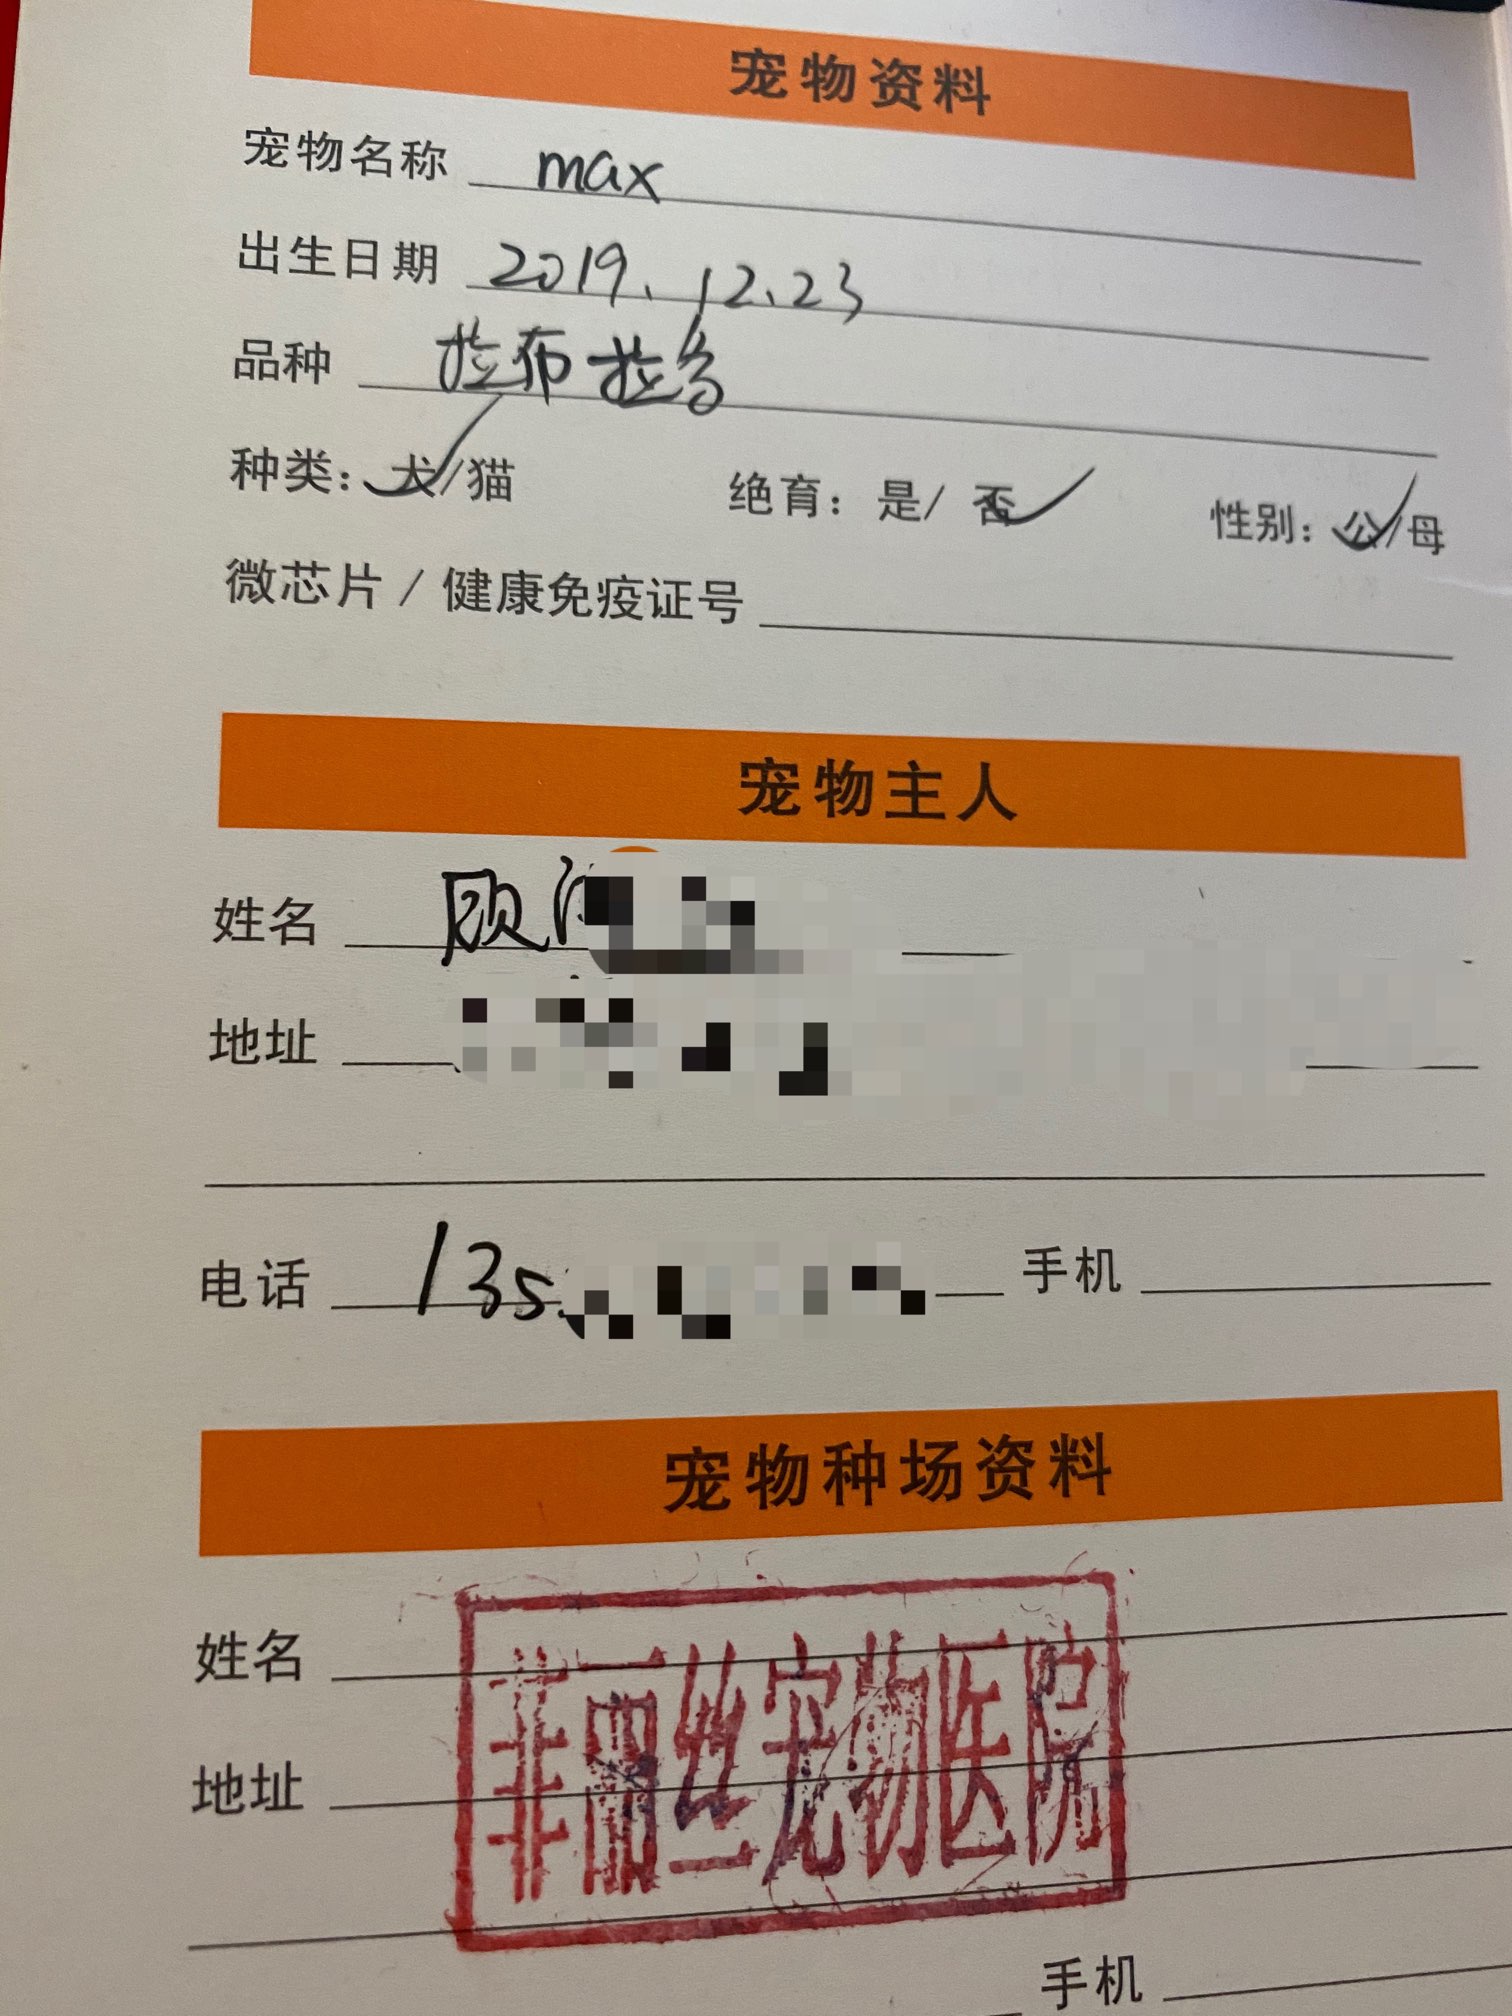 宠物资料
宠物名称 max
出生日期 2019.12.23
品种 拉布拉多
种类：犬/猫 绝育：是/否 性别：公/母
微芯片/健康免疫证号
宠物主人
姓名 顾
地址
电话 135 手机
宠物种场资料
姓名
菲丽丝宠物医院
地址
手机